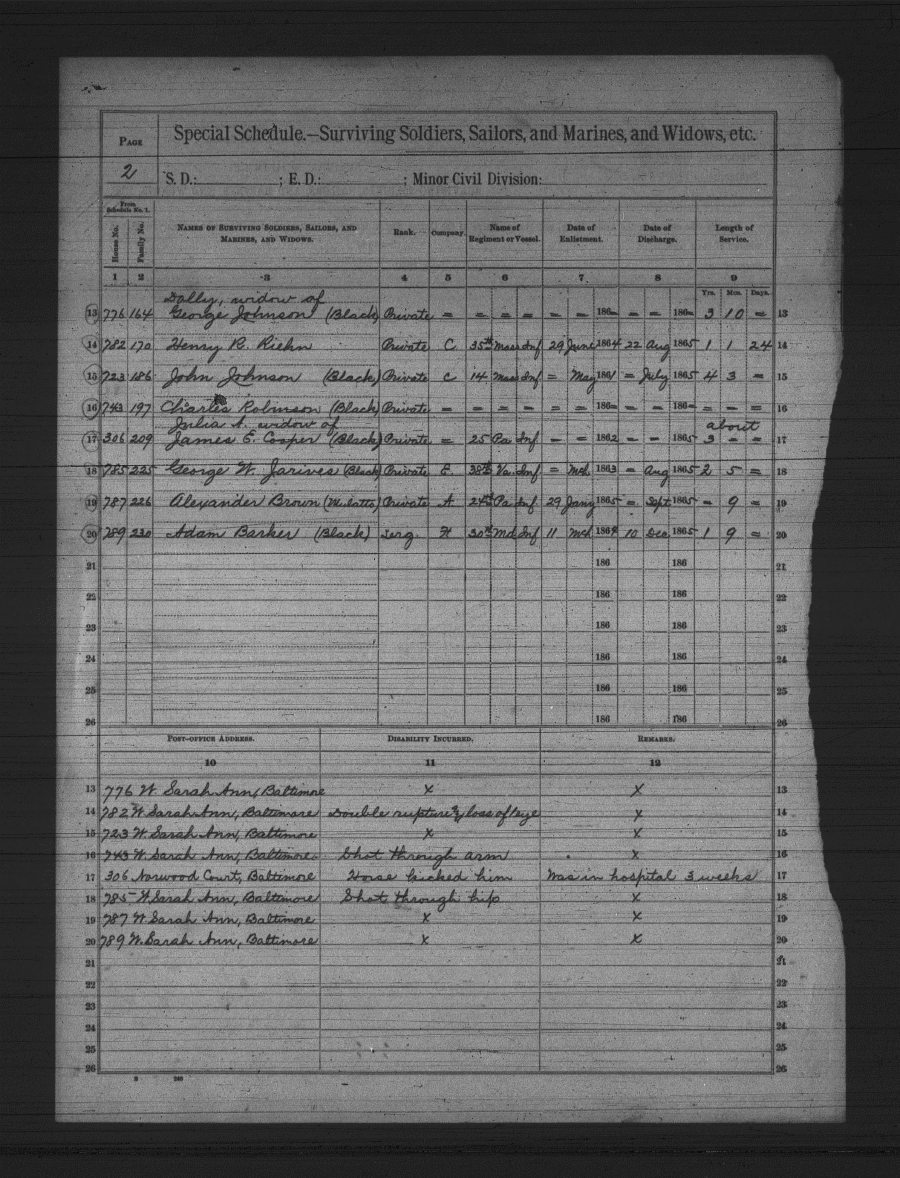 Special Schedule.—Surviving Soldiers, Sailors, and Marines, and Widows, etc.
PAGE
2
S. D.: ; E. D.: ; Minor Civil Division:
From Schedule No. 1.
House No. Family No. NAMES OF SURVIVING SOLDIERS, SAILORS, AND MARINES, AND WIDOWS. Rank. Company. Name of Regiment or Vessel. Date of Enlistment. Date of Discharge. Length of Service.
1 2 3 4 5 6 7 8 9
Yrs. Mos. Days.
Dolly, widow of
13 776 164 George Johnson (Black) Private = = = = = = 186= = = 186= 3 10 = 13
14 782 170 Henry R. Riehn Private C 35th Mass Inf 29 June 1864 22 Aug 1865 1 1 24 14
15 723 186 John Johnson (Black) Private C 14 Mass Inf = May 1861 = July 1865 4 3 = 15
16 743 197 Charles Robinson (Black) Private = = = = = = 186= = = 186= = = = 16
Julia A. widow of about
17 306 209 James E. Cooper (Black) Private = 25 Pa Inf = = 1862 = = 1865 3 = = 17
18 785 225 George W. Jarives (Black) Private E 38th Va. Inf = Mch 1863 = Aug 1865 2 5 = 18
19 787 226 Alexander Brown (Mulatto) Private A 24th Pa Inf 29 Jany 1865 = Sept 1865 = 9 = 19
20 789 230 Adam Barker (Black) Serg H 30th Md Inf 11 Mch 1864 10 Dec 1865 1 9 = 20
21 186 186 21
22 186 186 22
23 186 186 23
24 186 186 24
25 186 186 25
26 186 186 26
POST-OFFICE ADDRESS. DISABILITY INCURRED. REMARKS.
10 11 12
13 776 W. Sarah Ann, Baltimore x x 13
14 782 W. Sarah Ann, Baltimore Double rupture & loss of eye x 14
15 723 W. Sarah Ann, Baltimore x x 15
16 743 W. Sarah Ann, Baltimore Shot through arm x 16
17 306 Norwood Court, Baltimore Horse kicked him Was in hospital 3 weeks 17
18 785 W. Sarah Ann, Baltimore Shot through hip x 18
19 787 W. Sarah Ann, Baltimore x x 19
20 789 W. Sarah Ann, Baltimore x x 20
21 21
22 22
23 23
24 24
25 25
26 26